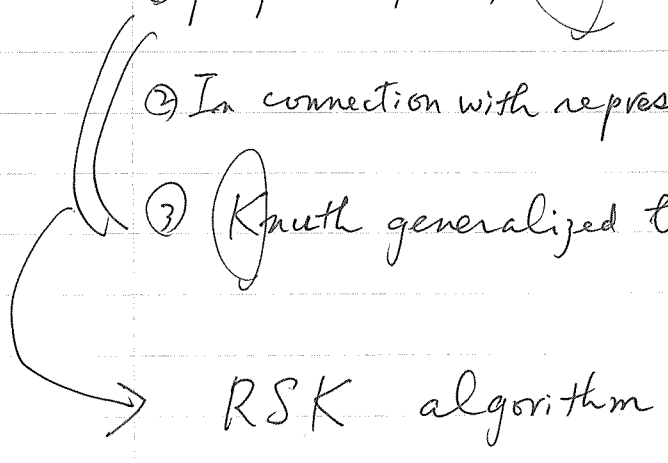 ② In connection with repres
③ Knuth generalized t
RSK algorithm